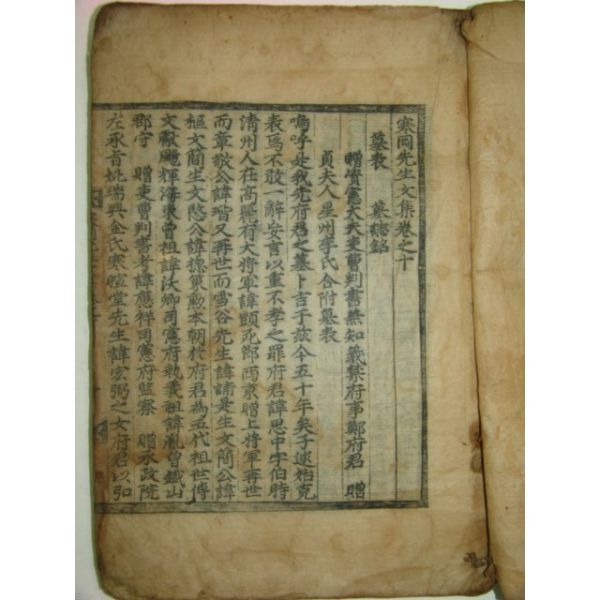 寒岡先生文集卷之十
墓表　墓碣銘
贈資憲大夫吏曹判書兼知義禁府事鄭府君　贈
貞夫人星州李氏合附墓表
嗚呼是我先府君之墓卜吉于玆今五十年矣子逑始克
表焉不敢一辭妄言以重不孝之罪府君諱思中字伯時
淸州人在高麗有大將軍諱顗死節西京贈上將軍再世
而章敬公諱瑎又再世而雪谷先生諱誧是生文簡公諱
樞文簡生文愍公諱摠策勳本朝於府君爲五代祖世傳
文獻颺輝海東曾祖諱沃卿司憲府執義祖諱胤曾鐵山
郡守　贈吏曹判書考諱應祥司憲府監察　贈承政院
左承旨妣瑞興金氏寒暄堂先生諱宏弼之女府君以弘